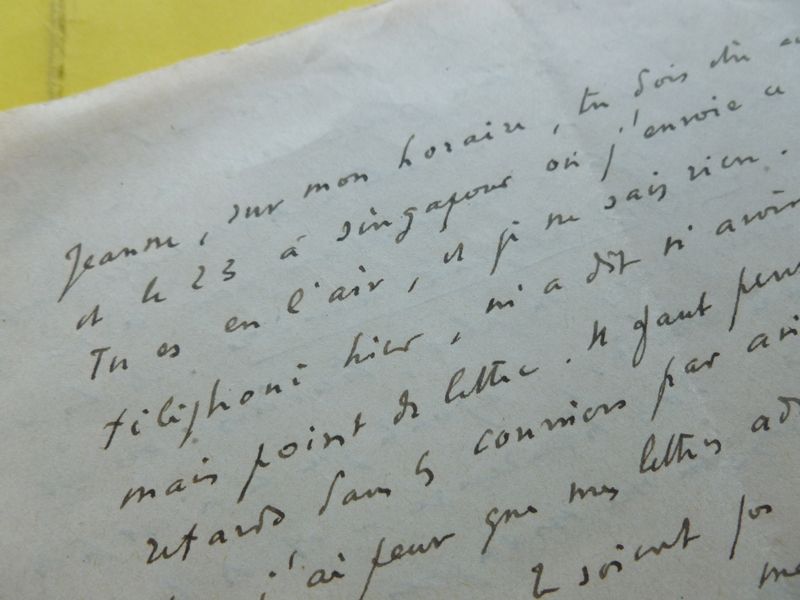 Jeanne, sur mon horaire, tu dois être
et le 23 à Singapour où j'envoie ce
Tu es en l'air, et je ne sais rien.
téléphoné hier, m'a dit n'avoir
mais point de lettre. Il faut
retards dans les courriers par
j'ai peur que mes lettres
soient